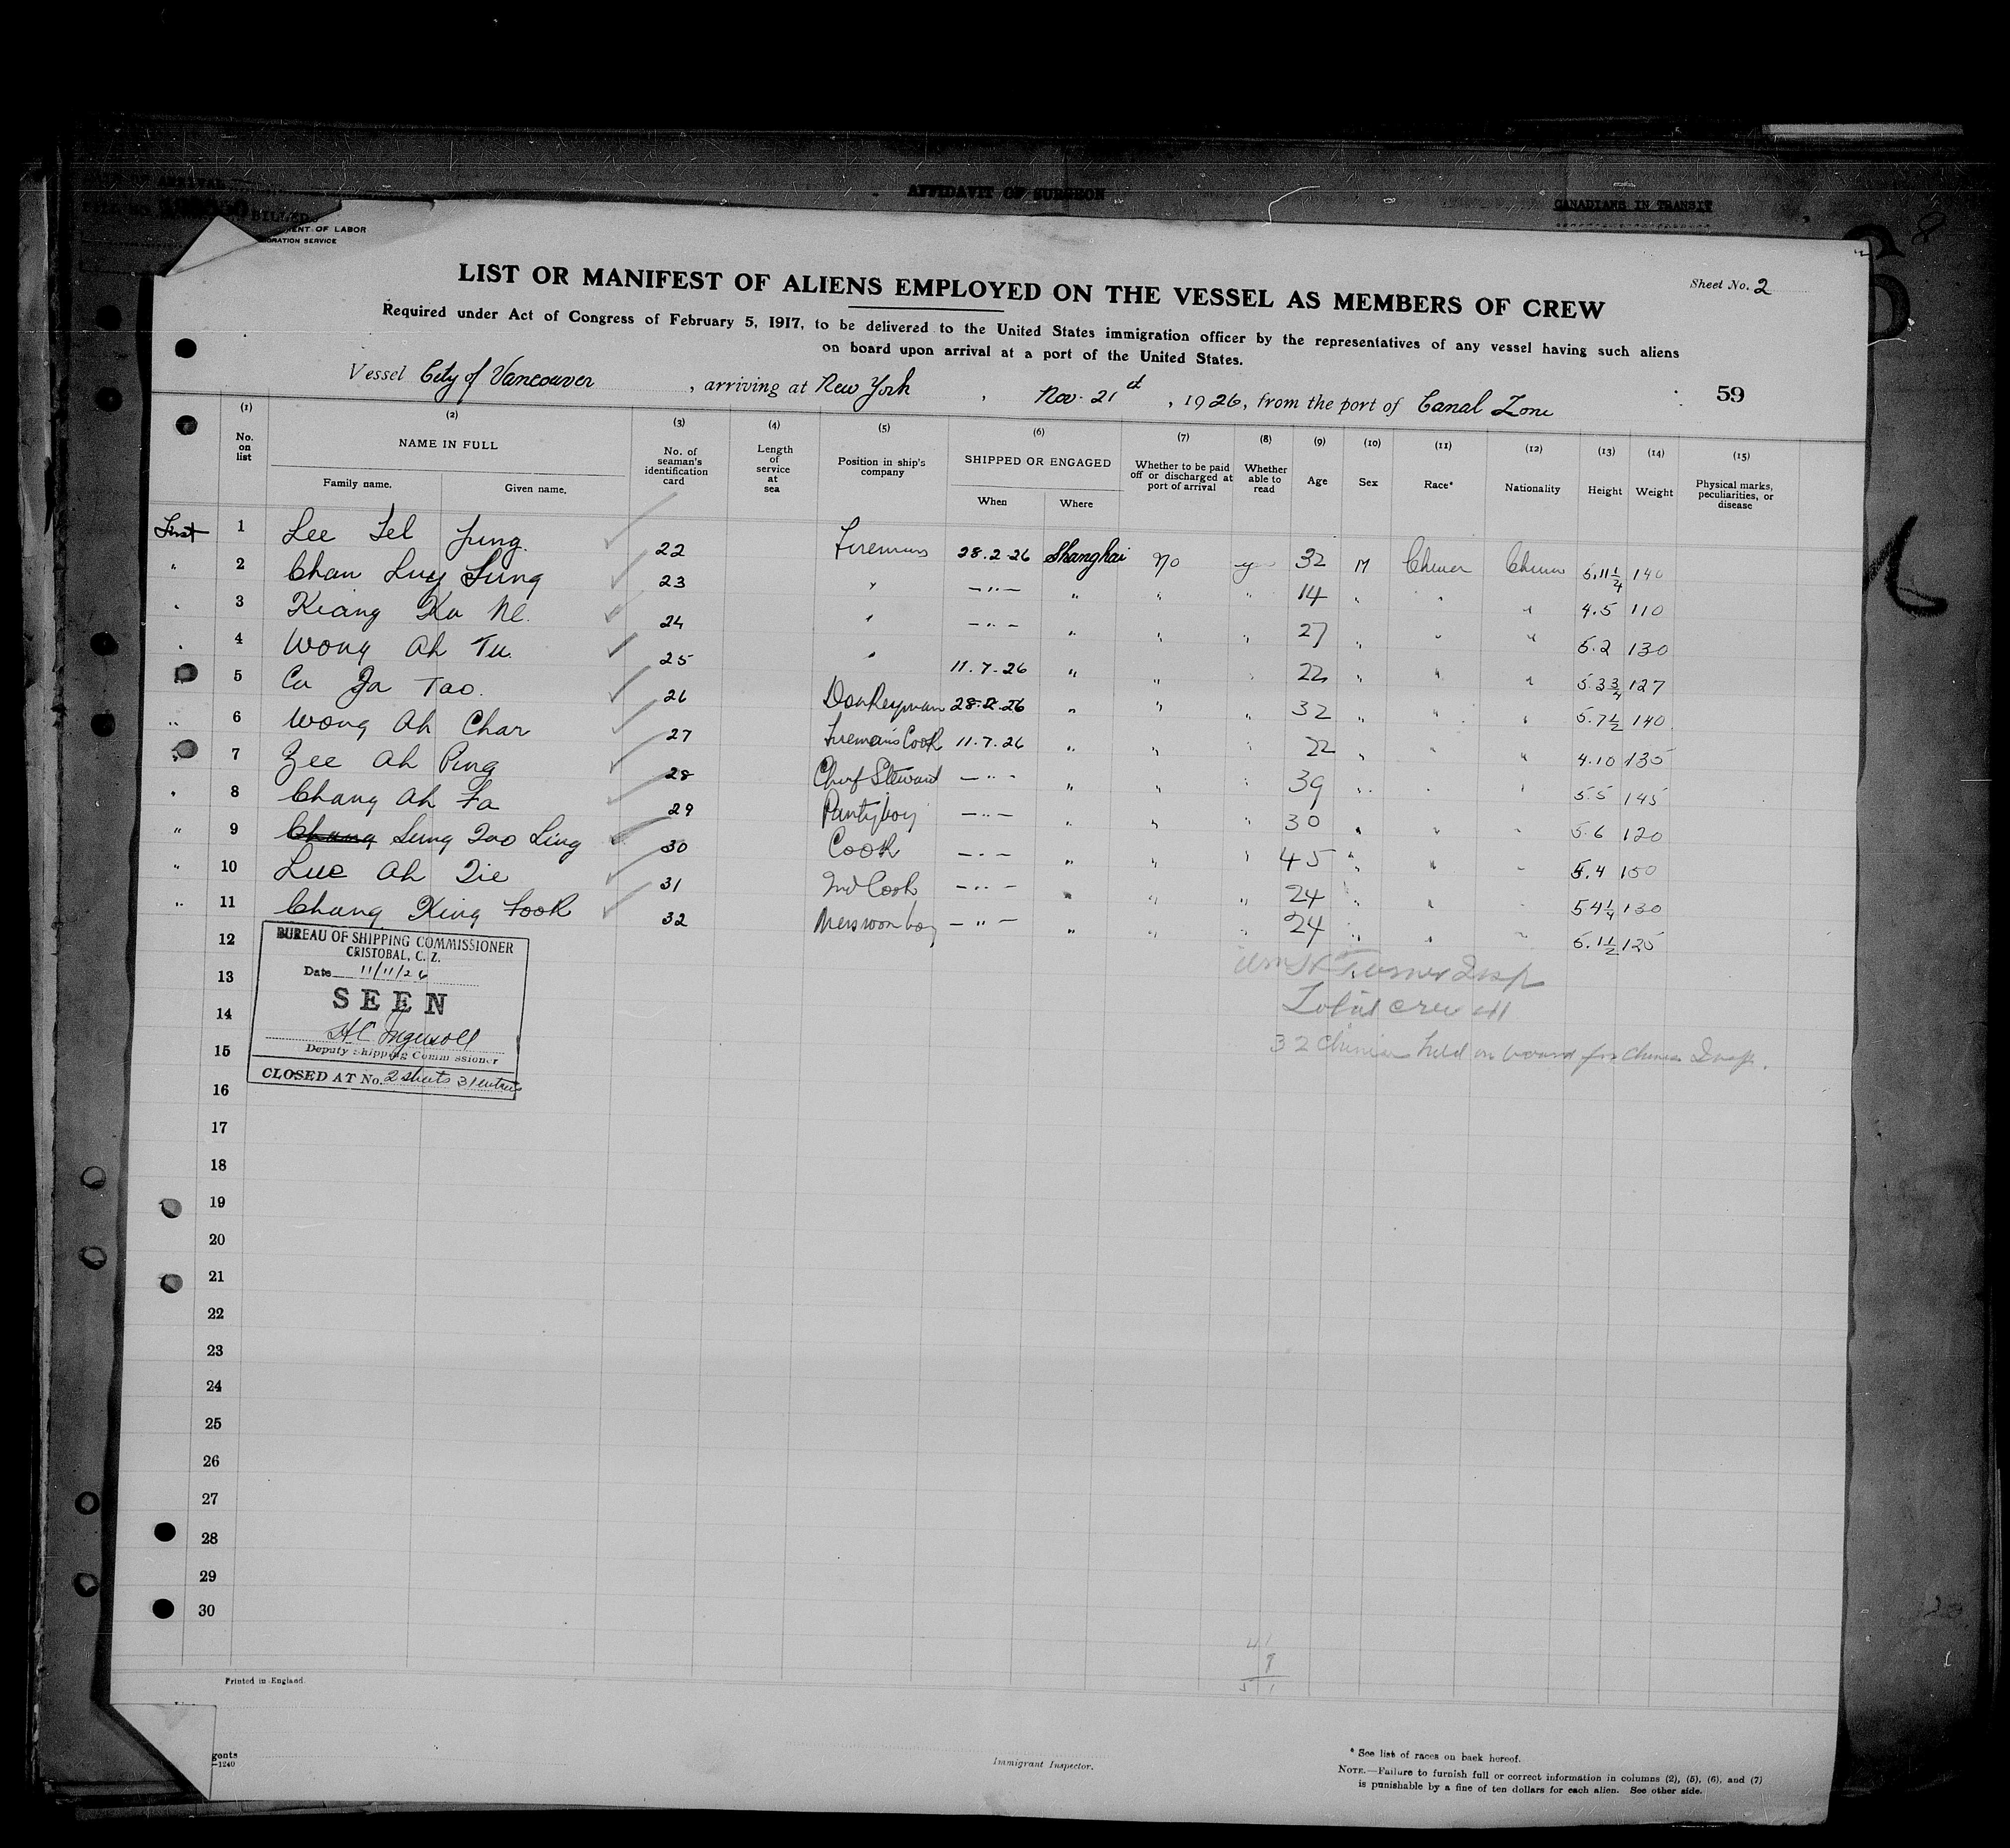 AFFIDAVIT OF SURGEON
CANADIANS IN TRANSIT
BILLED
ENT OF LABOR
GRATION SERVICE
Sheet No. 2
LIST OR MANIFEST OF ALIENS EMPLOYED ON THE VESSEL AS MEMBERS OF CREW
Required under Act of Congress of February 5, 1917, to be delivered to the United States immigration officer by the representatives of any vessel having such aliens
on board upon arrival at a port of the United States.
Vessel City of Vancouver, arriving at New York, Nov. 21st, 1926, from the port of Canal Zone
59
(1) (2) (3) (4) (5) (6) (7) (8) (9) (10) (11) (12) (13) (14) (15)
No. on list NAME IN FULL Family name. Given name. No. of seaman's identification card Length of service at sea Position in ship's company SHIPPED OR ENGAGED When Where Whether to be paid off or discharged at port of arrival Whether able to read Age Sex Race* Nationality Height Weight Physical marks, peculiarities, or disease
First 1 Lee Jung. 22 Firemans 28.2.26 Shanghai No 32 M 5.11 1/4 140
" 2 Chan Luy Sung 23 " — " — " " " 14 " " " 4.5 110
" 3 Kiang Ku Ne. 24 " — " — " " " 27 " " " 5.2 130
" 4 Wong Ah Tu. 25 " 11.7.26 " " " 22 " " " 5.3 3/4 127
5 Cu Ja Tao. 26 Donkeyman 28.2.26 " " " 32 " " " 5.7 1/2 140
" 6 Wong Ah Char 27 Fireman's Cook 11.7.26 " " " 22 " " " 4.10 135
" 7 Zee Ah Ping 28 Chief Steward — " — " " " 39 " " " 5.5 145
" 8 Chang Ah Fa 29 Pantryboy — " — " " " 30 " " " 5.6 120
" 9 Chang Sung Zao Ling 30 Cook — " — " " " 45 " " " 5.4 150
" 10 Lue Ah Zie 31 2nd Cook — " — " " " 24 " " " 5 4 1/4 130
" 11 Chang King Fook 32 Messroom boy — " — " " " 24 " " " 5.1 1/2 125
12
BUREAU OF SHIPPING COMMISSIONER
CRISTOBAL, C. Z.
13
Date 11/11/26
SEEN
Turner Insp
14
Total crew 41
H C Ingersoll
Deputy Shipping Commissioner
15
32 Chinese held on board for Chinese Insp.
CLOSED AT No. 2 sheets 31 entries
16
17
18
19
20
21
22
23
24
25
26
27
28
29
30
41
9
51
Printed in England.
gents
—1240
Immigrant Inspector.
* See list of races on back hereof.
NOTE.—Failure to furnish full or correct information in columns (2), (5), (6), and (7)
is punishable by a fine of ten dollars for each alien. See other side.